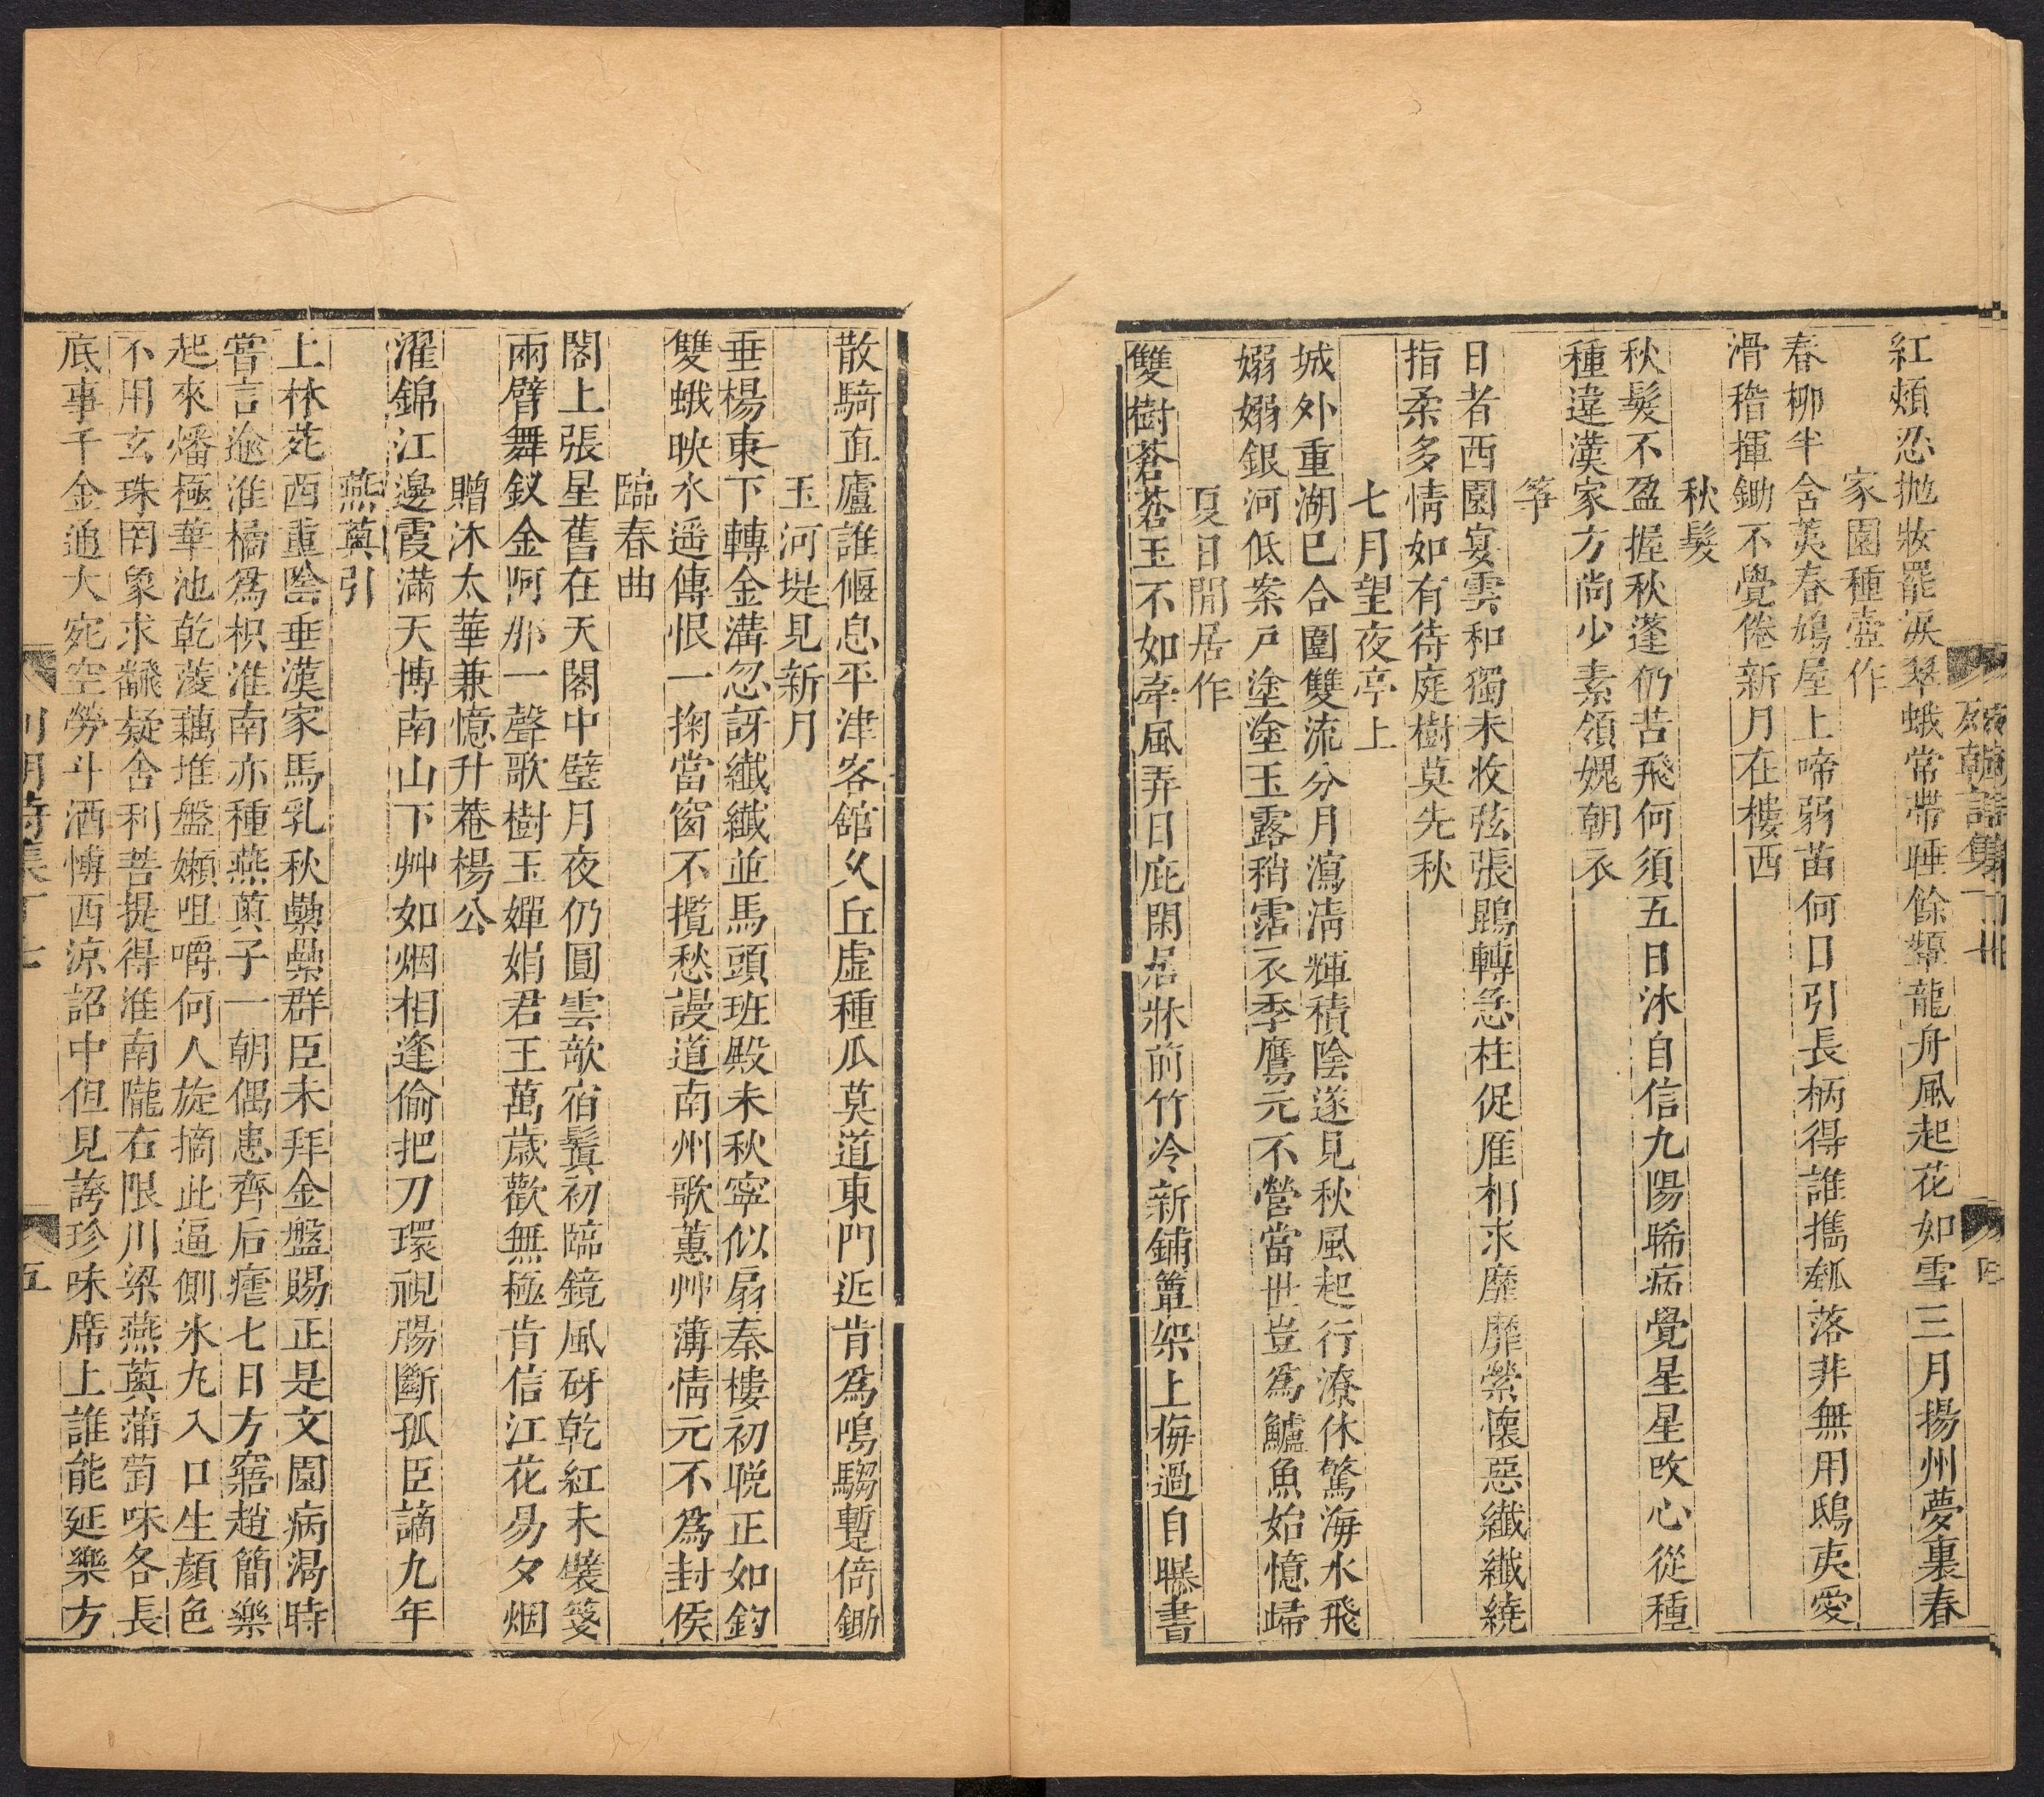 紅頰忍拋妝罷淚翠蛾常帶睡餘顰龍舟風起花如雪三月揚州夢裏春
家園種壺作
春柳半含荑春鳩屋上啼弱苗何日引長柄得誰攜瓠落非無用鴟夷愛
滑稽揮鋤不覺倦新月在樓西
秋髮
秋髮不盈握秋蓬仍苦飛何須五日沐自信九陽晞病覺星星改心從種
種違漢家方尚少素領媿朝衣
箏
日者西園宴雲和獨未收弦張鵾轉急柱促雁相求靡靡縈懷惡纖纖繞
指柔多情如有待庭樹莫先秋
七月望夜亭上
城外重湖巳合圍雙流分月瀉淸輝積陰遂見秋風起行潦休驚海水飛
嫋嫋銀河低案戶塗塗玉露稍霑衣季鷹元不營當世豈爲鱸魚始憶歸
夏日閒居作
雙樹蒼蒼玉不如牽風弄日庇閑居牀前竹冷新鋪簟架上梅過自曝書
散騎直廬誰偃息平津客舘久丘虛種瓜莫道東門近肯爲鳴騶暫倚鋤
玉河堤見新月
垂楊東下轉金溝忽訝纖纖並馬頭班殿未秋寧似扇秦樓初晚正如鈎
雙蛾映水遥傳恨一掬當窗不攬愁謾道南州歌蕙艸薄情元不爲封侯
臨春曲
閣上張星舊在天閣中璧月夜仍圓雲欹宿鬢初臨鏡風砑乾紅未襞箋
兩臂舞釵金阿那一聲歌樹玉嬋娟君王萬歲歡無極肯信江花易夕烟
贈沐太華兼憶升菴楊公
濯錦江邊霞滿天博南山下艸如烟相逢偷把刀環視腸斷孤臣謫九年
燕薁引
上林苑西重陰垂漢家馬乳秋虆虆群臣未拜金盤賜正是文園病渴時
嘗言逾淮橘爲枳淮南亦種燕薁子一朝偶患齊后瘧七日方寤趙簡樂
起來燔極華池乾菱藕堆盤嬾咀嚼何人旋摘此逼側氷丸入口生顏色
不用玄珠罔象求翻疑舍利菩提得淮南隴右限川梁燕薁蒲萄味各長
底事千金通大宛空勞斗酒博西涼詔中但見誇珍味席上誰能延樂方
列朝詩集丁七
五